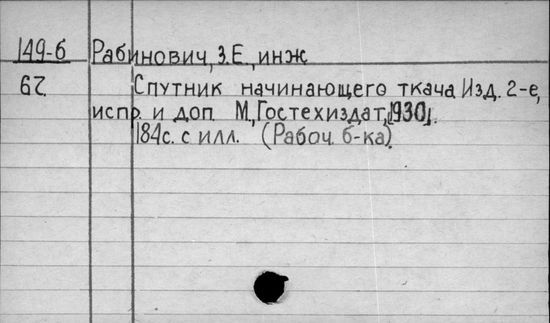 149-б Рабинович, З.Е., инж
62. Спутник начинающего ткача. Изд. 2-е,
испр. и доп. М., Гостехиздат, [1930].
184с. с илл. (Рабоч. б-ка).